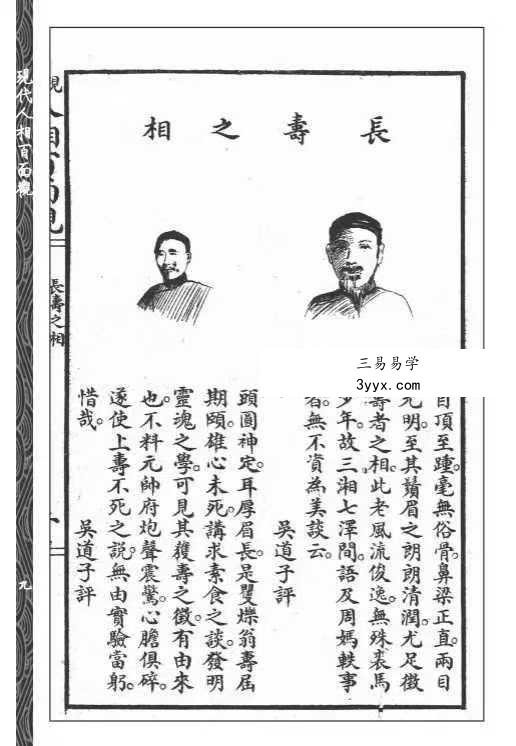 現代人相百面觀
長壽之相
長壽之相
三易易学
3yyx.com
自頂至踵。毫無俗骨。鼻梁正直。兩目
光明。至其鬚眉之朗朗清潤。尤足徵
壽者之相。此老風流俊逸。無殊裘馬
少年。故三湘七澤間。語及周媽軼事
者。無不資為美談云。
吳道子評
頭圓神定。耳厚眉長。是矍爍翁壽屆
期頤。雄心未死。講求素食之談。發明
靈魂之學。可見其獲壽之徵。有由來
也。不料元帥府炮聲震驚。心膽俱碎。
遂使上壽不死之說。無由實驗當躬。
惜哉。
吳道子評
九